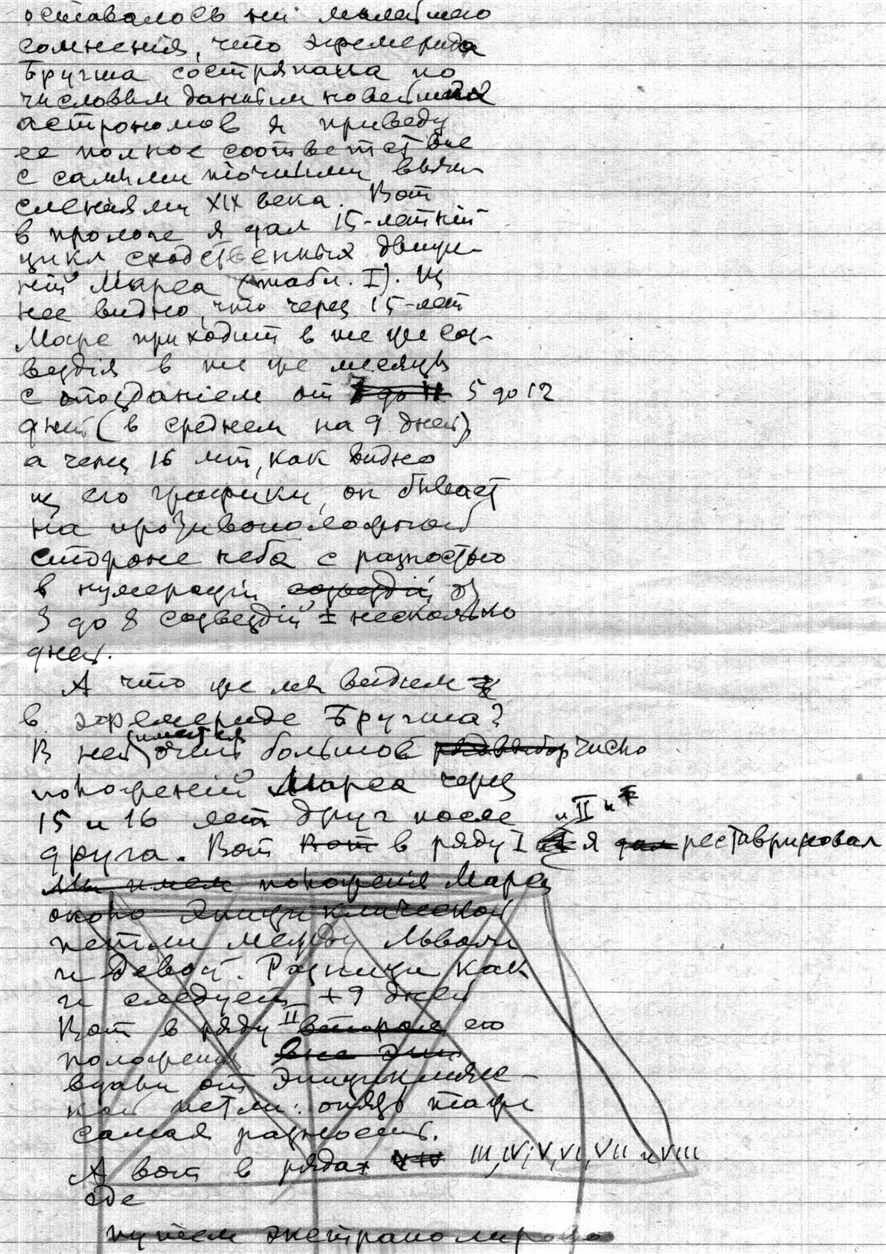 оставалось ни малейшего
сомнения, что эфемерида
Бругша состряпана по
числовым данным новейших
астрономов я приведу
ее полное соответствие
с самыми точными вычи-
слениями XIX века. Вот
в прологе я дал 15-летний
цикл сходственных движе-
ний Марса (табл. I). Из
нее видно, что через 15-лет
Марс приходит в те же соз-
вездия в те же месяцы
с опозданием от 7 до 11 5 до 12
дней (в среднем на 9 дней),
а через 16 лет, как видно
из его графики, он бывает
на противоположной
стороне неба с разностью
в нумерации созвездий от
3 до 8 созвездий ± несколько
дней.
А что же мы видим
в эфемериде Бругша?
В ней имеется очень большое число
положений Марса через
15 и 16 лет друг после "II"
друга. Вот Вот в ряду I я дал реставрировал
Мы имеем положения Марса
около эпициклической
петли между Львом
и Девой. Разницы как
и следует +9 дней
Вот в ряду II втором его
положения вне эпи
вдали от эпицикличес-
кой петли: опять та же
самая разность.
А вот в рядах III, IV, V, VI, VII и VIII
где
путем экстраполировки